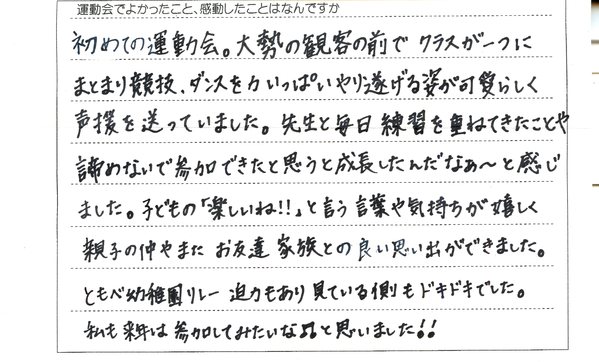 運動会でよかったこと、感動したことはなんですか
初めての運動会。大勢の観客の前で クラスが一つに
まとまり競技、ダンスを力いっぱいやり遂げる姿が可愛らしく
声援を送っていました。先生と毎日練習を重ねてきたことや
諦めないで参加できたと思うと成長したんだなぁ〜と感じ
ました。子どもの「楽しいね!!」と言う言葉や気持ちが嬉しく
親子の仲やまた お友達 家族との良い思い出ができました。
ともべ幼稚園リレー 迫力もあり見ている側もドキドキでした。
私も来年は参加してみたいな♫と思いました!!